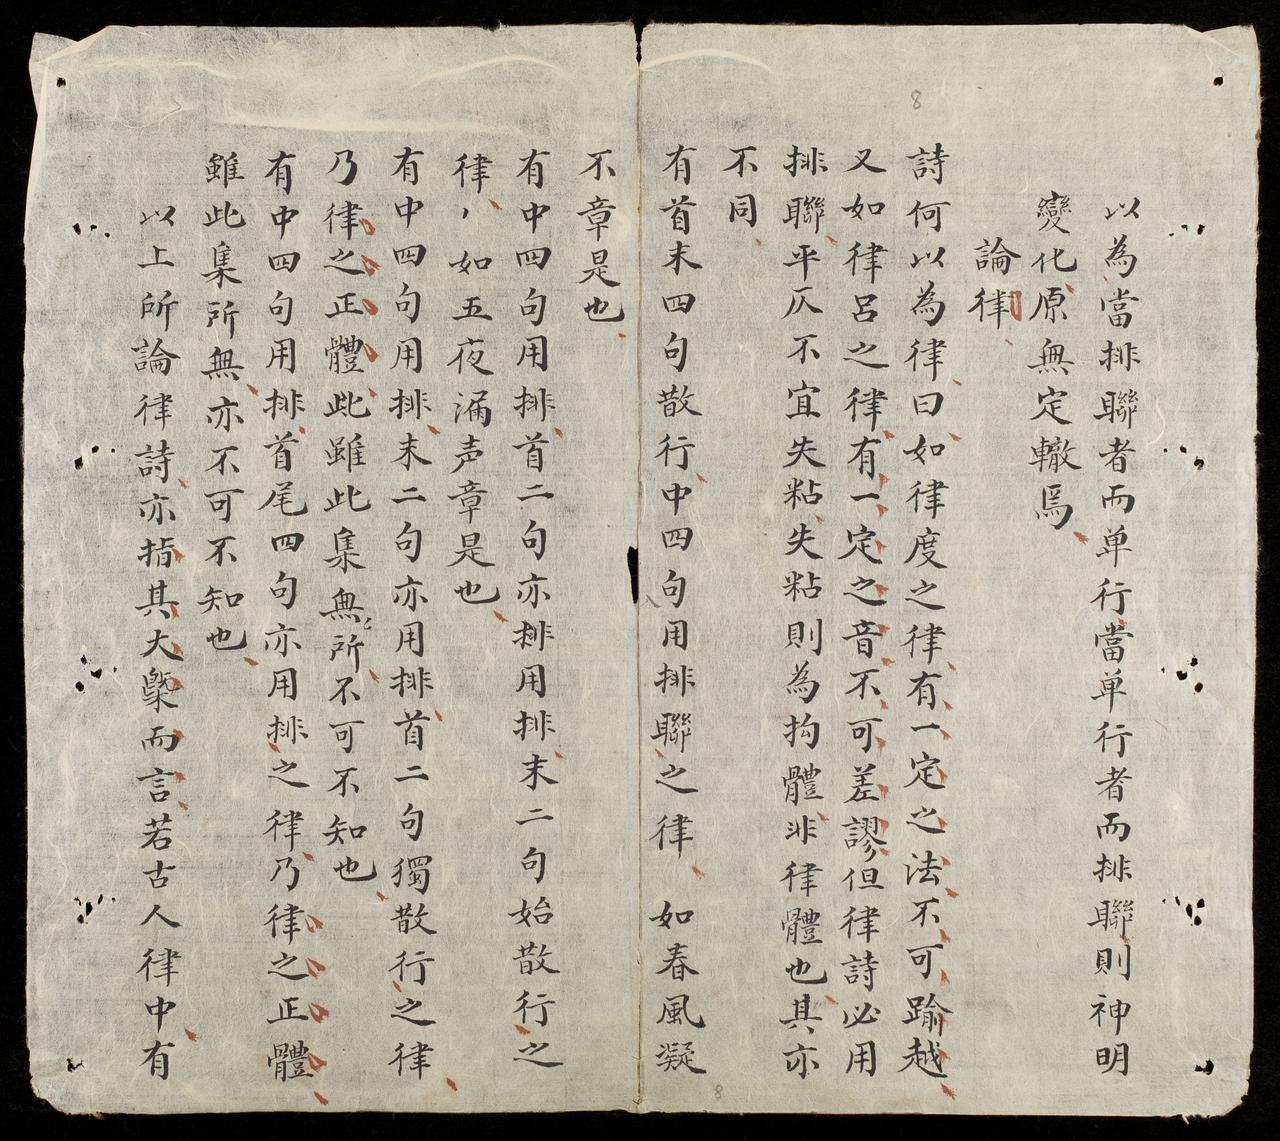 8
以為當排聯者而单行當单行者而排聯則神明
變化原無定轍焉
論律
詩何以為律曰如律度之律有一定之法不可踰越
又如律呂之律有一定之音不可差謬但律詩必用
排聯平仄不宜失粘失粘則為拘體非律體也其亦
不同
有首末四句散行中四句用排聯之律 如春風凝
不章是也
有中四句用排首二句亦排用排末二句始散行之
律、如五夜漏声章是也
有中四句用排末二句亦用排首二句獨散行之律
乃律之正體此雖此集無所不可不知也
有中四句用排首尾四句亦用排之律乃律之正體
雖此集所無亦不可不知也
以上所論律詩亦指其大槩而言若古人律中有
8